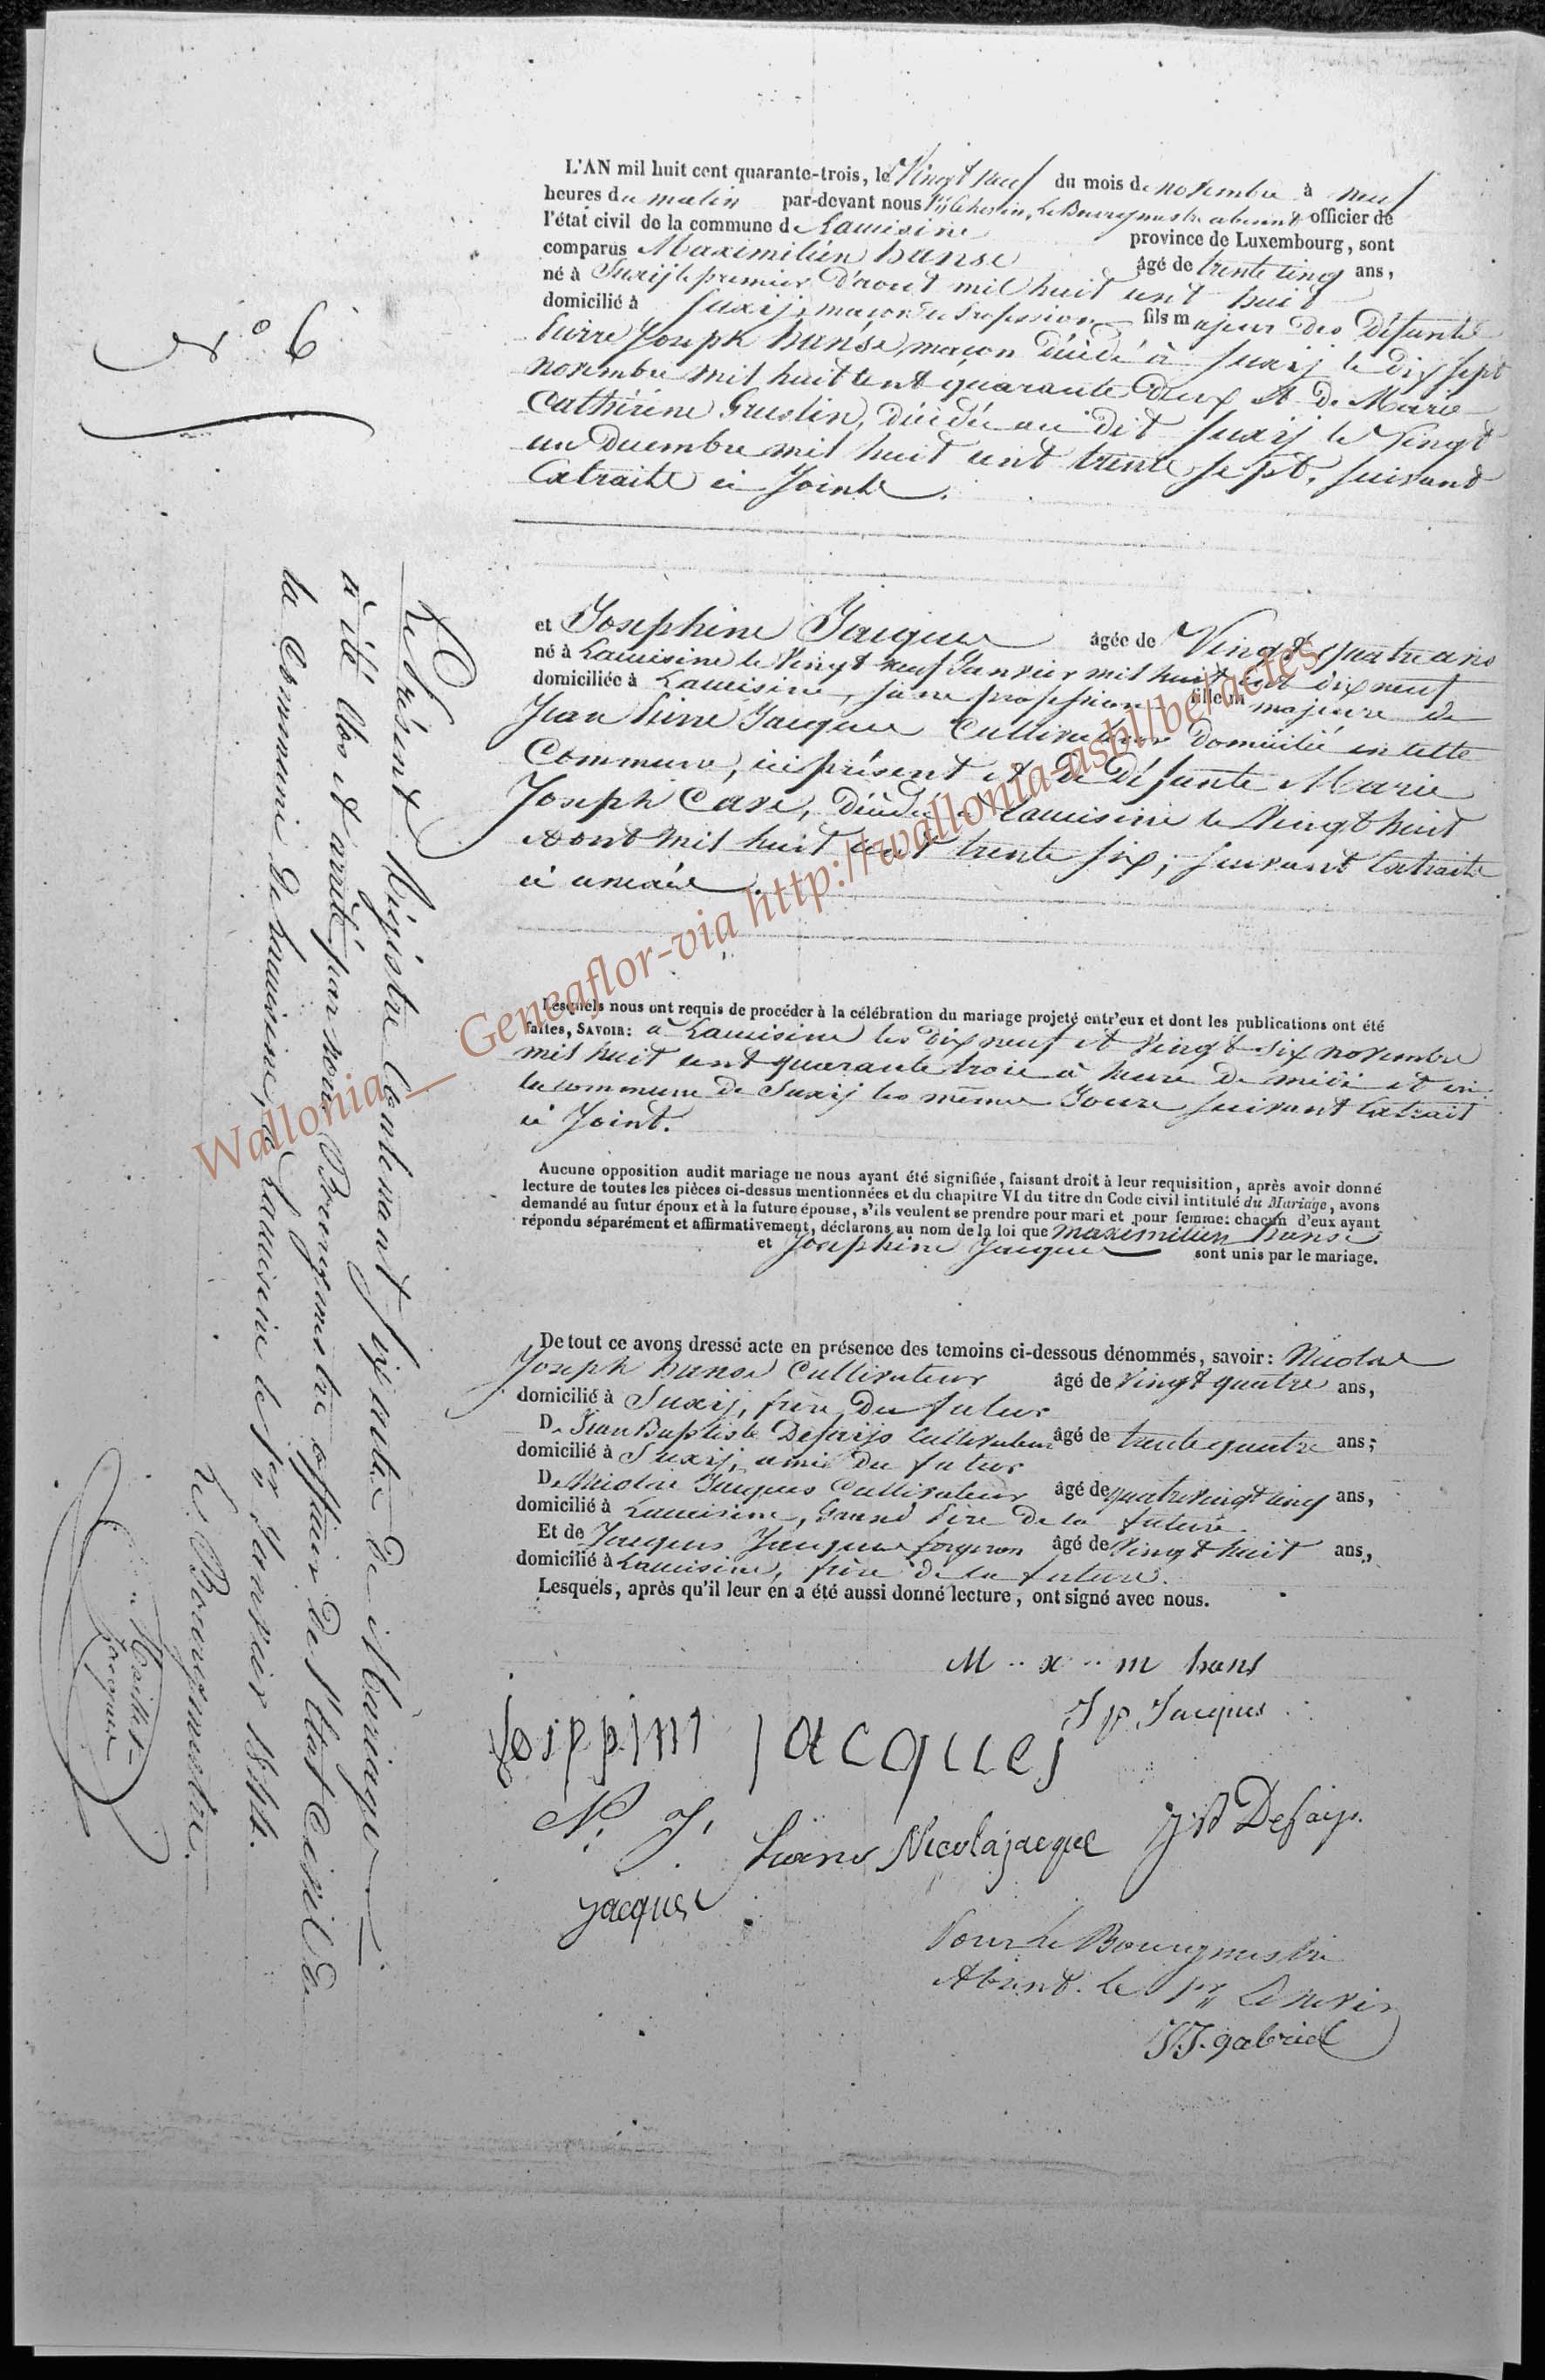 N° 6
L'AN mil huit cent quarante-trois, le Vingt neuf du mois de novembre à neuf
heures du matin par-devant nous Echevin, Le Bourgmestre absent officier de
l'état civil de la commune de Lacuisine province de Luxembourg, sont
comparus Maximilien hanse âgé de trente cinq ans,
né à Suxij le premier D'aout mil huit cent huit
domicilié à Suxij, maçon de Profession fils majeur des Défunts
Pierre Joseph hanse, maçon décédé à Suxij le dix sept
novembre mil huit cent quarante deux et De Marie
Catherine Guslin, décédée au dit Suxij le Vingt
un Decembre mil huit cent trente sept, suivant
Extraits ci Joints.
et Josephine Jacques âgée de Vingt quatre ans
né à Lacuisine le Vingt neuf Janvier mil huit cent dix neuf
domiciliée à Lacuisine, sans profession fille majeure de
Jean Pierre Jacques Cultivateur Domicilié en cette
Commune, ici présent et De Défunte Marie
Joseph Cave, Décédée à Lacuisine le Vingt huit
Aout mil huit cent trente six, suivant Extraits
ci annexés.
Lesquels nous ont requis de procéder à la célébration du mariage projeté entr'eux et dont les publications ont été
faites, SAVOIR: à Lacuisine les Dix neuf et Vingt six novembre
mil huit cent quarante trois à heure De midi et en
la commune de Suxij les mêmes Jours suivant Extrait
ci Joint.
Aucune opposition audit mariage ne nous ayant été signifiée, faisant droit à leur requisition, après avoir donné
lecture de toutes les pièces ci-dessus mentionnées et du chapitre VI du titre du Code civil intitulé du Mariage, avons
demandé au futur époux et à la future épouse, s'ils veulent se prendre pour mari et pour femme: chacun d'eux ayant
répondu séparément et affirmativement, déclarons au nom de la loi que Maximilien hanse
et Josephine Jacques sont unis par le mariage.
De tout ce avons dressé acte en présence des temoins ci-dessous dénommés, savoir: Nicolas
Joseph hanse Cultivateur âgé de Vingt quatre ans,
domicilié à Suxij, frère Du futur
De Jean Baptiste Defaijs Cultivateur âgé de trente quatre ans;
domicilié à Suxij, ami Du futur
De Nicolas Jacques Cultivateur âgé de quatre vingt cinq ans,
domicilié à Lacuisine, Grand Père De la future
Et de Jacques Jacques forgeron âgé de Vingt huit ans,
domicilié à Lacuisine, frère De la future.
Lesquels, après qu'il leur en a été aussi donné lecture, ont signé avec nous.
M .. x .. m hans
J p. Jacques
Josippin jacques
N. J. hans Nicola jacque J B Defaijs.
jacques
Pour Le Bourgmestre
Absent. Le 1er Echevin
J J. gabriel
Le Présent Régistre Contenant six actes De Mariages
à été Clos et arrêté par nous Bourgmestre officier De l'état Civil De
la Commune De Lacuisine, à Lacuisine le 1er Janvier 1844.
Le Bourgmestre.
Jacques
Wallonia_Geneaflor-via http://wallonia-asbl/be/actes